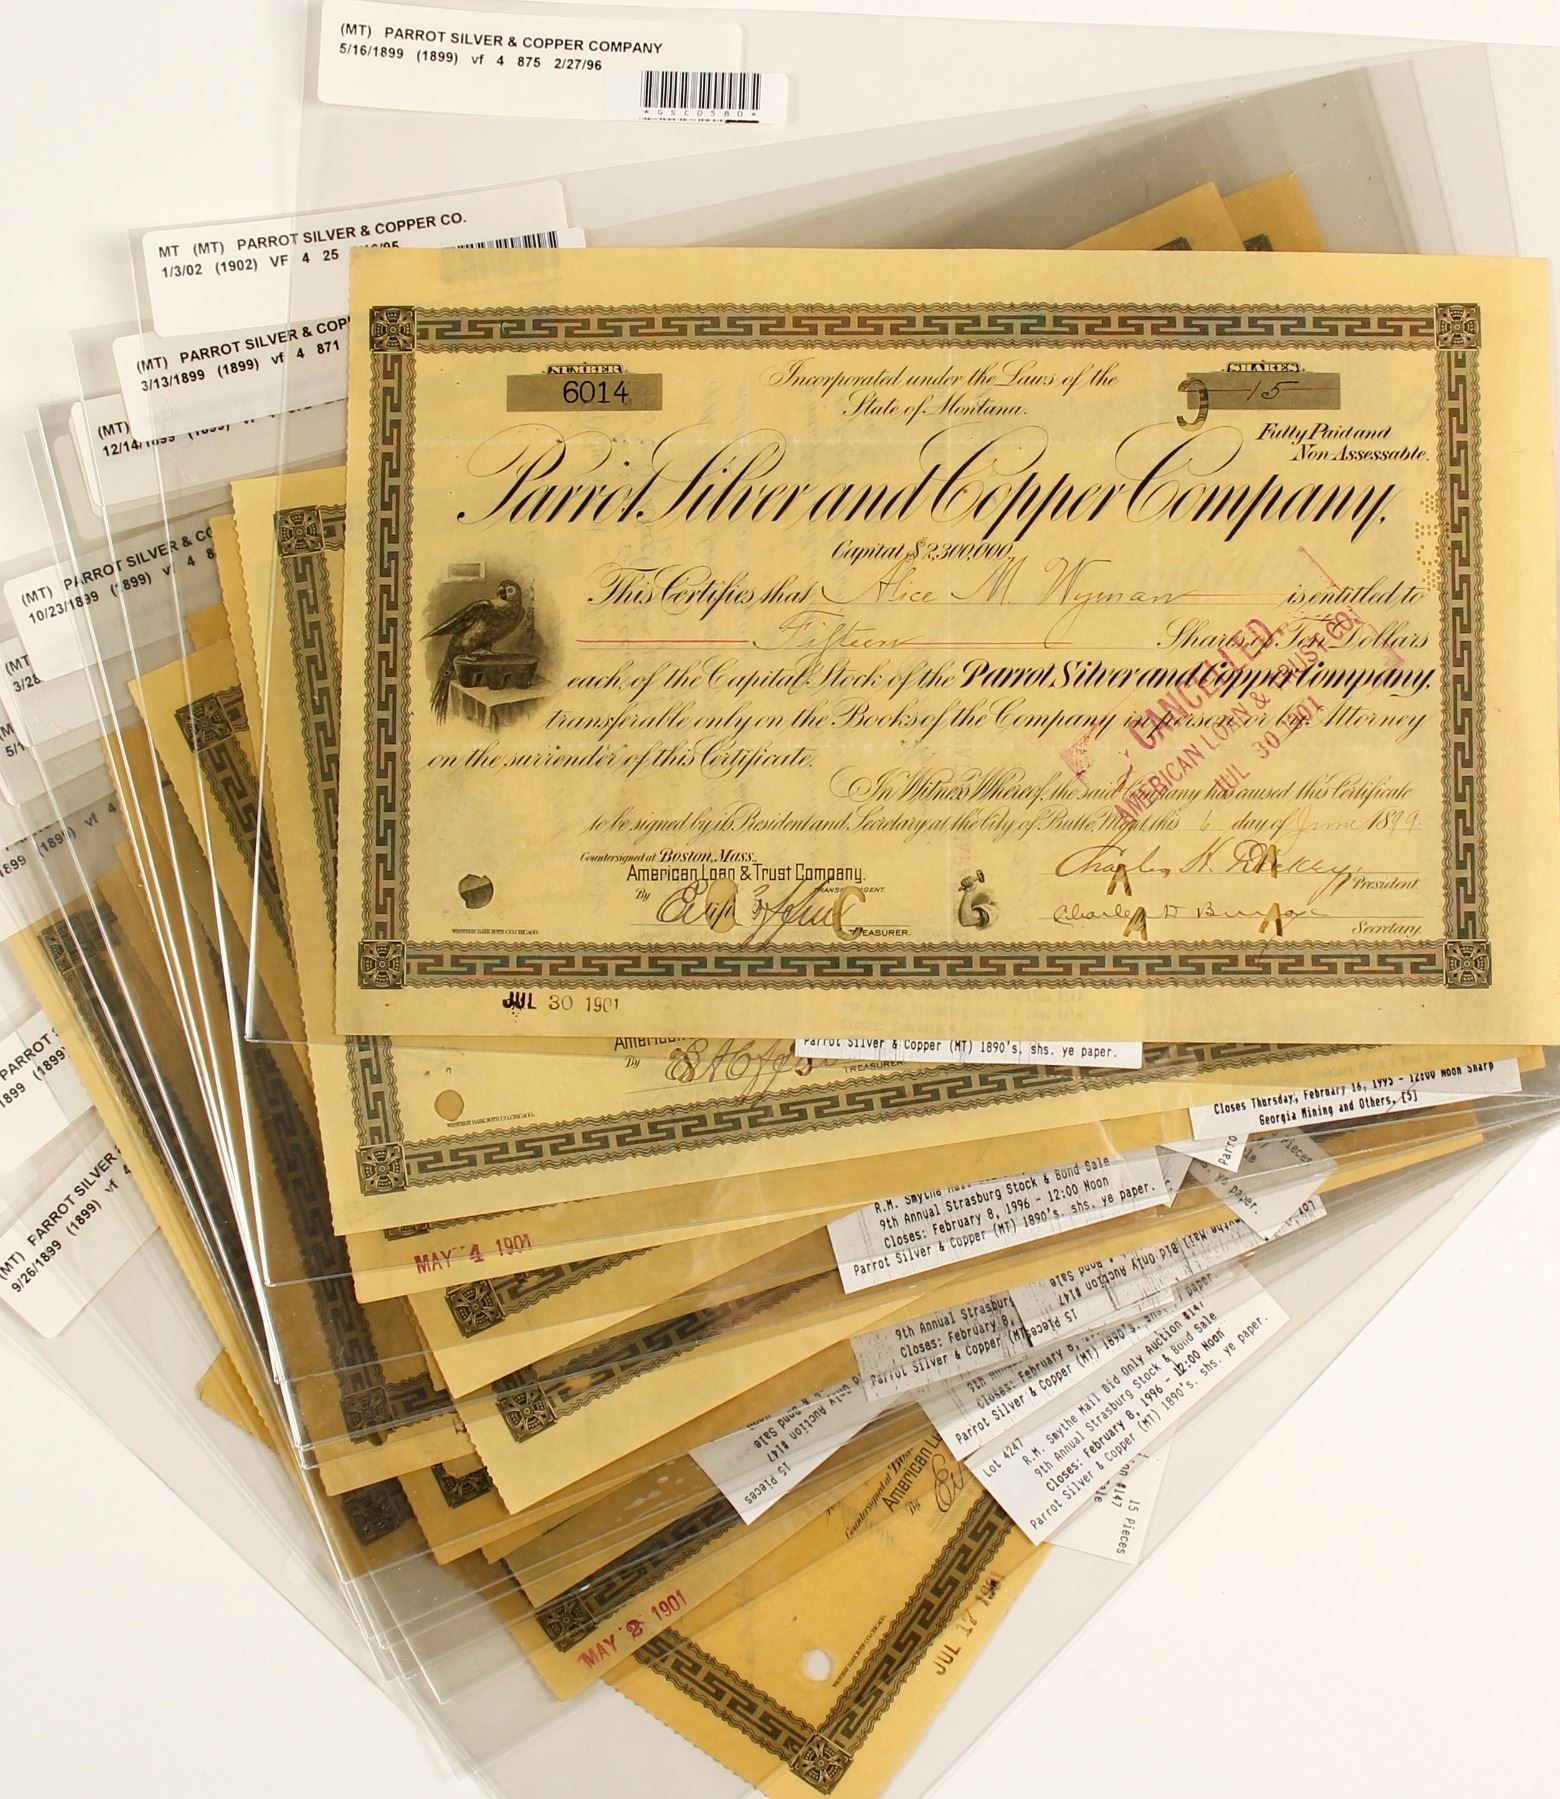 (MT) PARROT SILVER & COPPER COMPANY
5/16/1899 (1899) vf 4 875 2/27/96
*GSC0580*
MT (MT) PARROT SILVER & COPPER CO.
1/3/02 (1902) VF 4 25
(MT) PARROT SILVER & COP
3/13/1899 (1899) vf 4 871
(MT)
12/14/1899 (1899)
(MT) PARROT SILVER & CO
10/23/1899 (1899) vf 4 8
(MT
3/28
5/1
1899 (1899) vf 4
PARROT S
1899 (1899)
(MT) PARROT SILVER &
9/26/1899 (1899) vf 4
NUMBER
6014
Incorporated under the Laws of the
State of Montana.
SHARES
15
Fully Paid and
Non-Assessable.
Parrot Silver and Copper Company,
Capital $2,300,000
This Certifies that Alice M. Wyman is entitled to
Fifteen Shares of Ten Dollars
each, of the Capital Stock of the Parrot Silver and Copper Company,
transferable only on the Books of the Company in person or by Attorney
on the surrender of this Certificate.
CANCELLED
AMERICAN LOAN & TRUST CO.
JUL 30 1901
In Witness Whereof, the said Company has caused this Certificate
to be signed by its President and Secretary at the City of Butte, Mont. this 6 day of June 1899
Countersigned at Boston, Mass.,
American Loan & Trust Company.
TRANSFER AGENT.
By
TREASURER.
President.
Charles D
Secretary.
WESTERN BANK NOTE CO. CHICAGO.
JUL 30 1901
By
TREASURER.
WESTERN BANK NOTE CO. CHICAGO.
Parrot Silver & Copper (MT) 1890's. shs. ye paper.
Closes Thursday, February 16, 1995 - 12:00 Noon Sharp
Georgia Mining and Others. [5]
Parro
pieces
ye paper.
MAY 4 1901
R.M. Smythe Mail
9th Annual Strasburg Stock & Bond Sale
Closes: February 8, 1996 - 12:00 Noon
Parrot Silver & Copper (MT) 1890's. shs. ye paper.
Bid Only Auction #147
& Bond Sale
15 Pieces
9th Annual Strasburg
Closes: February 8,
Parrot Silver & Copper (MT
Closes: February 8,
Parrot Silver & Copper (MT) 1890's.
Lot 4247
R.M. Smythe Mail Bid Only Auction #147
9th Annual Strasburg Stock & Bond Sale
Closes: February 8, 1996 - 12:00 Noon
Parrot Silver & Copper (MT) 1890's. shs. ye paper.
Only Auction #147
& Bond Sale
15 Pieces
#147
15 Pieces
Countersigned at Bos
American L
By
MAY 2 1901
JUL 17 1901